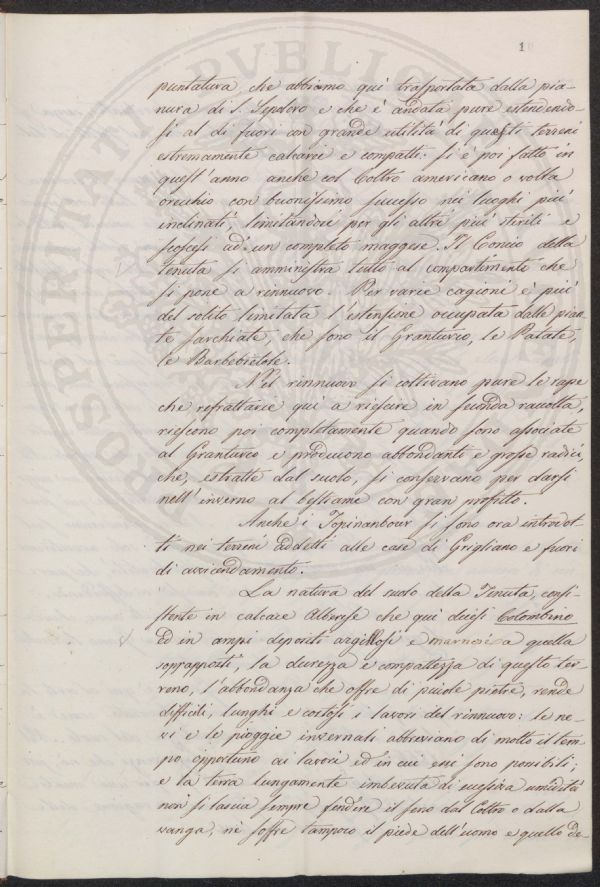 1
puntatura, che abbiamo qui trasportata dalla pia-
nura di S. Sepolcro e che è andata pure estendendo-
si al di fuori con grande utilità di questi terreni
estremamente calcarei e compatti: si è poi fatto in
quest'anno anche col Coltro americano o volta
orecchio con buonissimo successo nei luoghi più
inclinati, limitandoci per gli altri più sterili e
scoscesi ad un completo maggese. Il Concio della
tenuta si amministra tutto al compartimento che
si pone a rinnuovo. Per varie cagioni è più
del solito limitata l'estensione occupata dalle pian-
te sarchiate, che sono il Granturco, le Patate,
le Barbebietole.
Nel rinnuovo si coltivano pure le rape
che refrattarie qui a riescire in seconda raccolta,
riescono poi completamente quando sono associate
al Granturco e producono abbondanti e grosse radici,
che, estratte dal suolo, si conservano per darsi
nell'inverno al bestiame con gran profitto.
Anche i Topinanbour si sono ora introdot-
ti nei terreni addetti alle case di Grigliano e fuori
di avvicendamento.
La natura del suolo della Tenuta, consi-
stente in calcare Alberese che qui dicesi Colombino
ed in ampi depositi argillosi e marnosi a quella
soprapposti, la durezza e compattezza di questo ter-
reno, l'abbondanza che offre di piccole pietre, rende
difficili, lunghi e costosi i lavori del rinnuovo: le ne-
vi e le pioggie invernali abbreviano di molto il tem-
po opportuno ai lavori ed in cui essi sono possibili;
e la terra lungamente imbevuta di soverchia umidità
non si lascia sempre fendere il seno dal Coltro o dalla
vanga, nè soffre tampoco il piede dell'uomo e quello de-
PROSPERITATI PUBLICAE